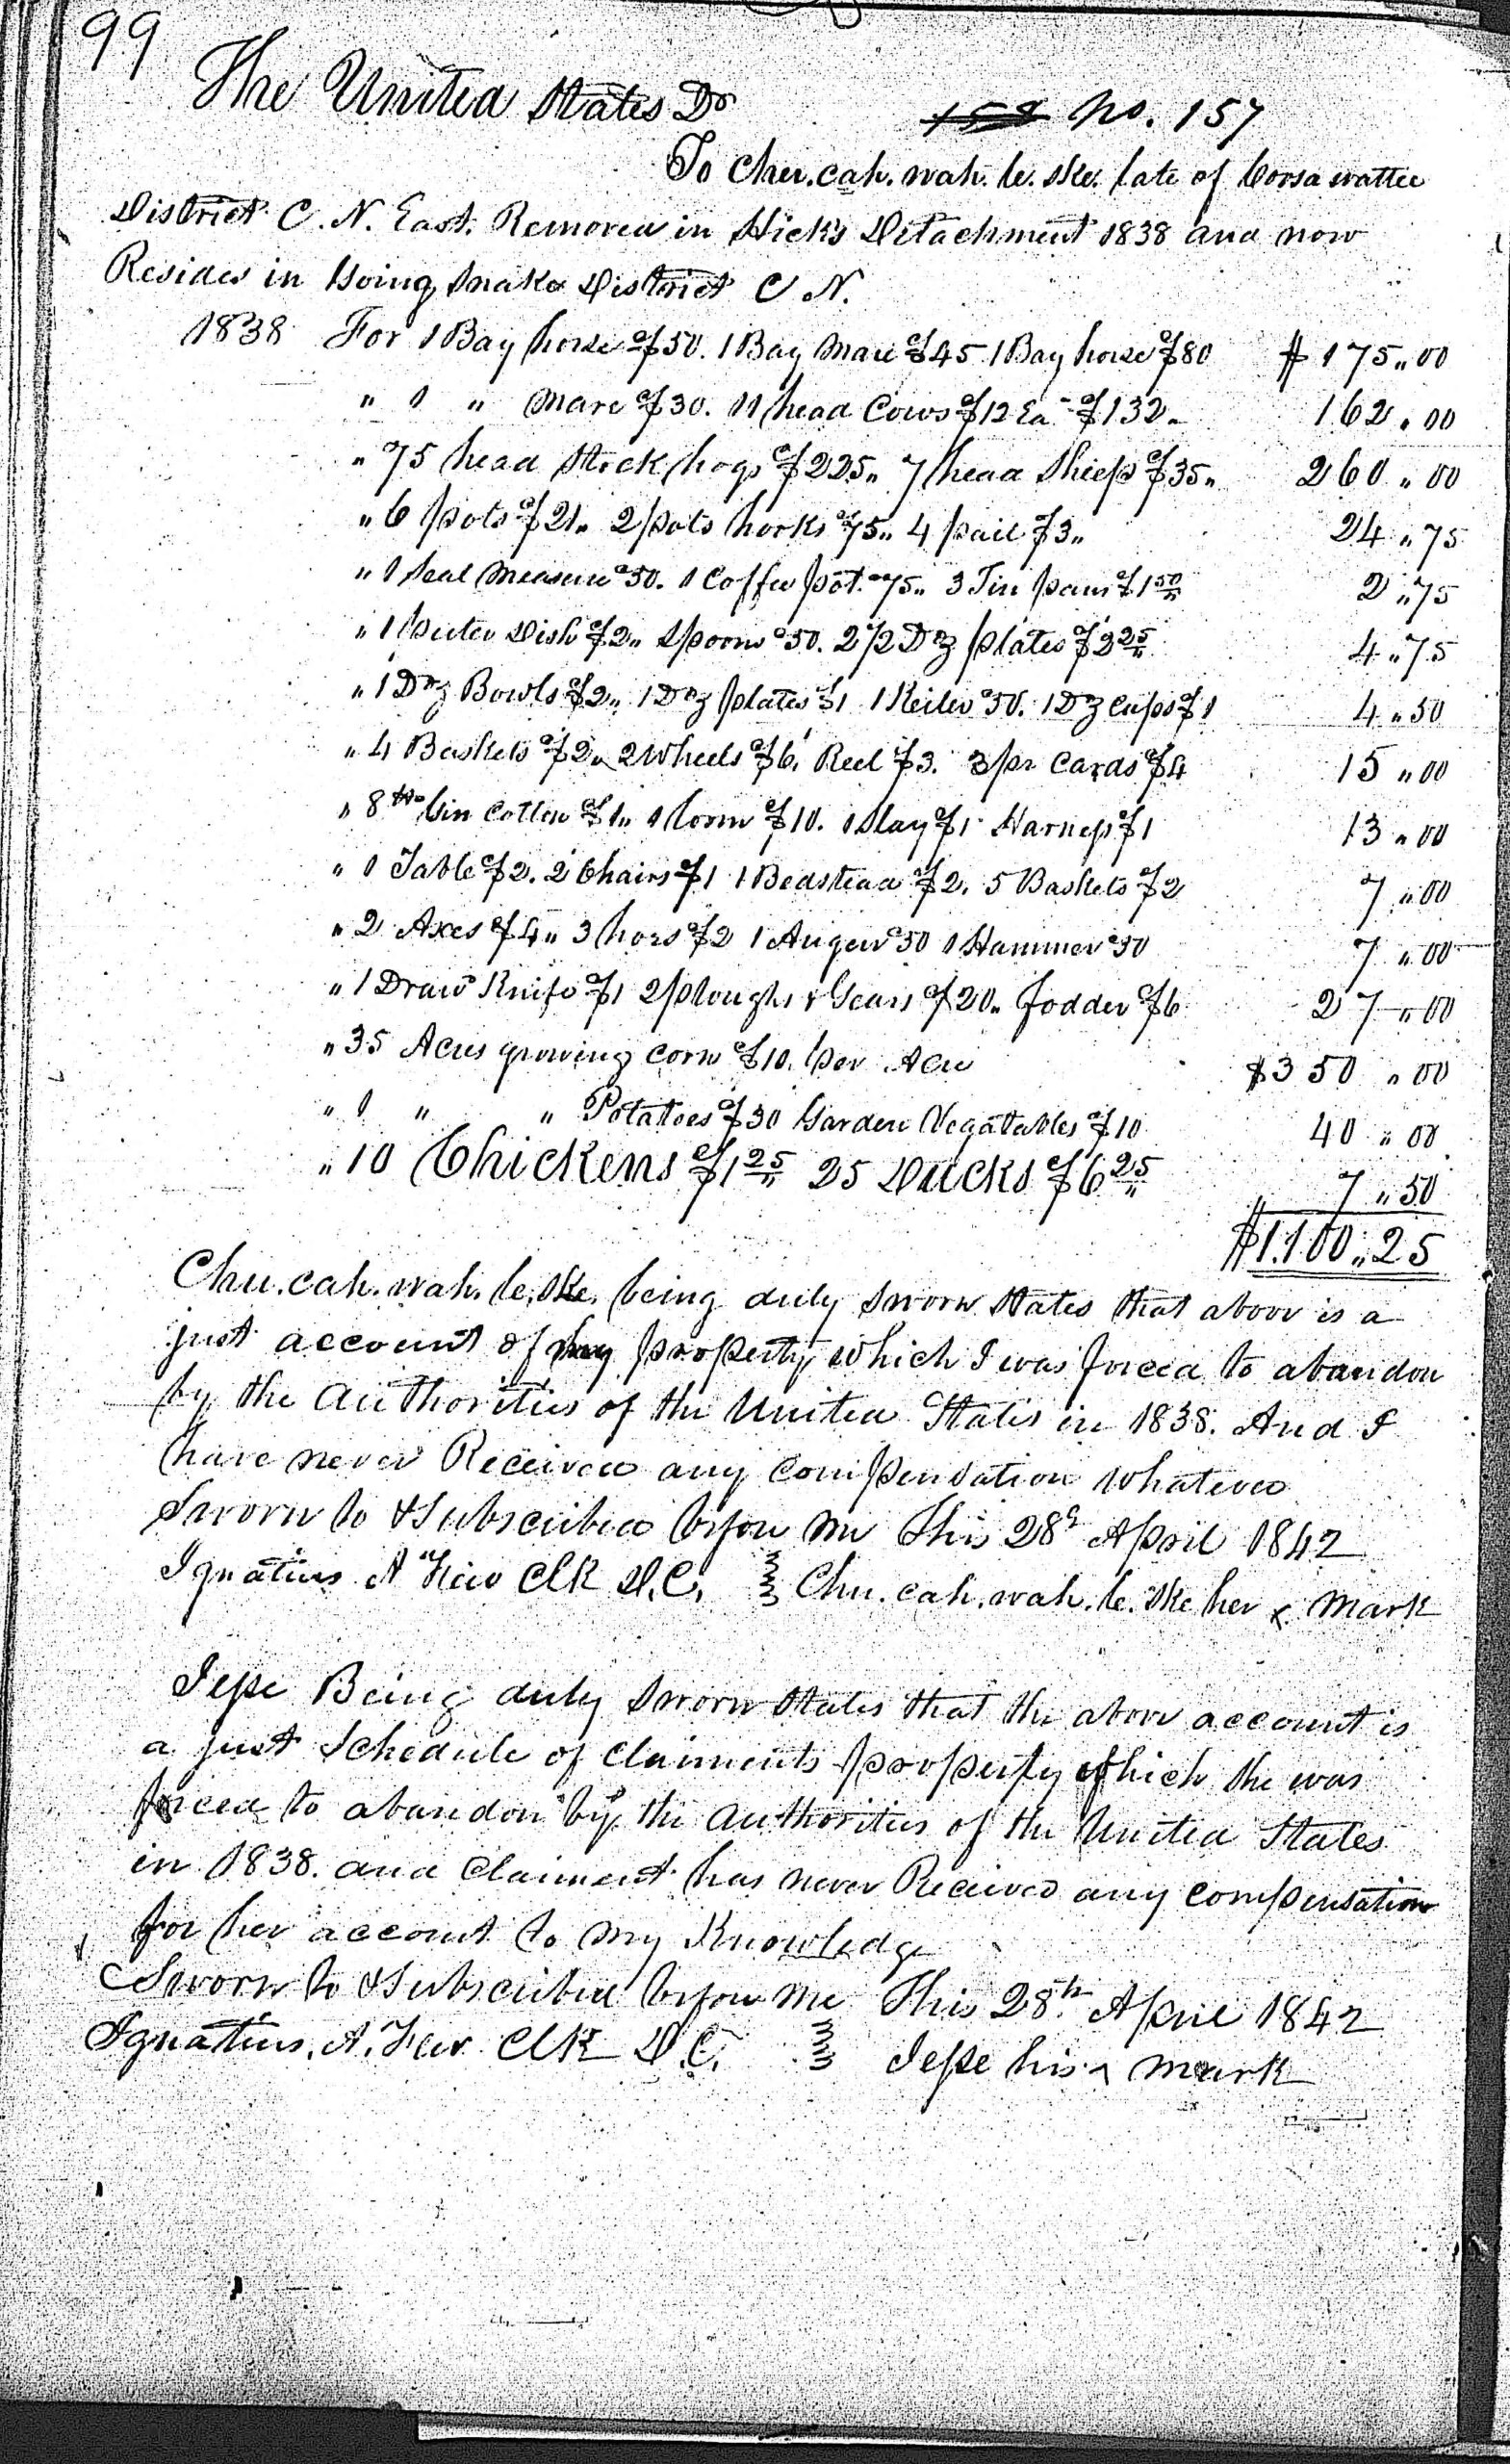 99
The United States Dr
158 No. 157
To Chu.cah.wah.le.ske. late of Coosawattee
District C. N. East. Removed in Hicks Detachment 1838 and now
Resides in Going Snake District C N.
1838 For 1 Bay horse $50. 1 Bay Mare $45 1 Bay horse $80 $175"00
" 1 " Mare $30. 11 head Cows $12 Ea - $132" 162"00
" 75 head Stock hogs $225" 7 head Sheep $35" 260"00
" 6 pots $21" 2 pots hooks 75" 4 pail $3" 24"75
" 1 Seal Measure 50. 1 Coffee pot 75" 3 Tin pans $1 50 2"75
" 1 Puter Dish $2" Spoons 50. 2 1/2 Doz plates $2 25 4"75
" 1 Doz Bowls $2" 1 Doz plates $1 1 Keiler 50. 1 Dz Cups $1 4"50
" 4 Baskets $2" 2 Wheels $6, Reel $3. 3 pr Cards $4 15"00
" 8 lb Gin Cotton $1" 1 loom $10. 1 Slay $1 Harness $1 13"00
" 1 Table $2. 2 Chairs $1 1 Bedstead $2. 5 Baskets $2 7"00
" 2 Axes $4" 3 hoes $2 1 Auger 50 1 Hammer 50 7"00
" 1 Draw Knife $1 2 ploughs & Gears $20" fodder $6 27"00
" 35 Acres growing corn $10. per Acre $350"00
" 1 " " Potatoes $30 Garden Vegatables $10 40"00
" 10 Chickens $1 25 25 Ducks $6 25 7"50
$1.100"25
Chu.cah.wah.le.ske. being duly sworn States that above is a
just account of my property which I was forced to abandon
by the authorities of the United States in 1838. And I
have never Received any compensation whatever
Sworn to & Subscribed before me This 28th April 1842
Ignatius A Few Clk D.C. Chu.cah.wah.le.ske her x mark
Jesse Being duly sworn States that the above account is
a just Schedule of Claiments property which she was
forced to abandon by the authorities of the United States
in 1838. and Claiment has never Received any compensation
for her account to my Knowledge
Sworn to & Subscribed before me This 28th April 1842
Ignatius. A. Few Clk D.C. Jesse his x mark